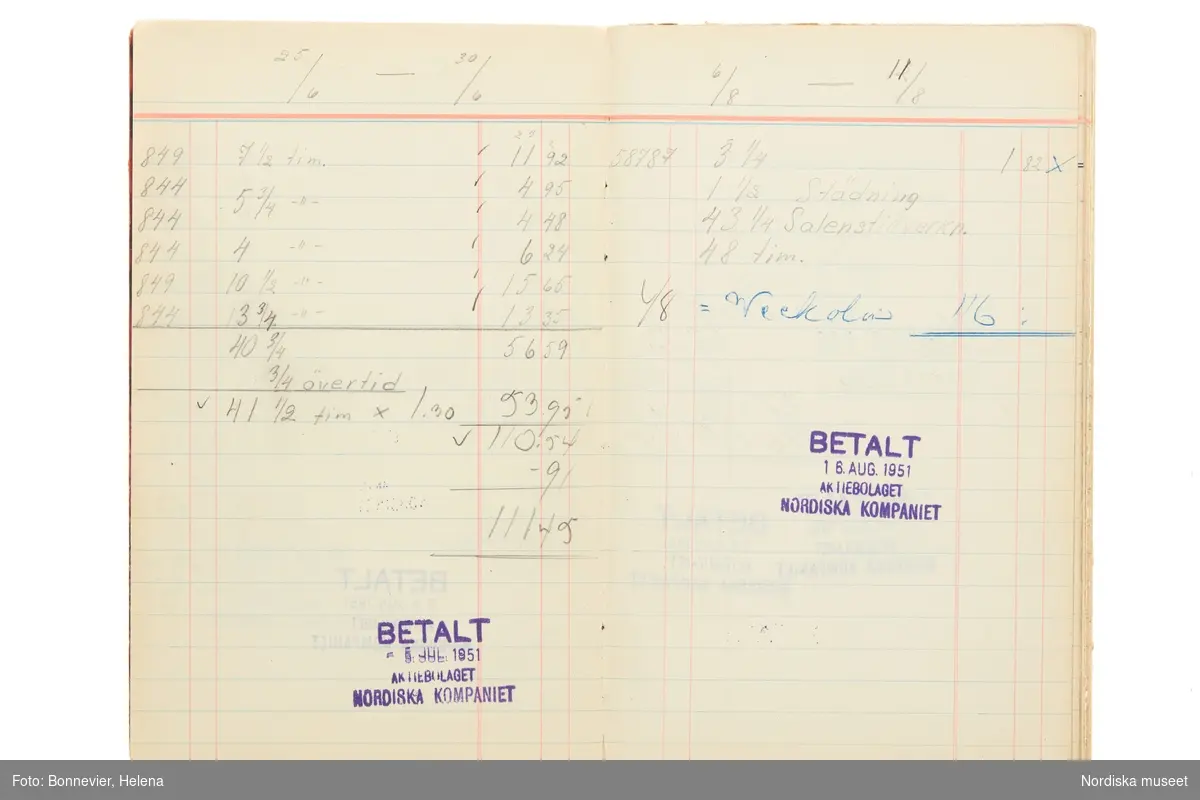 25/6 — 30/6
849 7 1/2 tim. 11 92
844 4 95
5 3/4 -"-
844 4 48
844 4 -"- 6 24
849 10 1/2 -"- 15 65
844 13 3/4 -"- 13 35
40 3/4 56 59
3/4 övertid
✓ 41 1/2 tim x 1.30 53.95
✓ 110.54
-91
111 45
BETALT
1951
AKTIEBOLAGET
NORDISKA KOMPANIET
6/8 — 11/8
58787 3 1/4 1 82 x =
1 1/2 Städning
43 1/4
48 tim.
= 116:
BETALT
16. AUG. 1951
AKTIEBOLAGET
NORDISKA KOMPANIET
Foto: Bonnevier, Helena
Nordiska museet